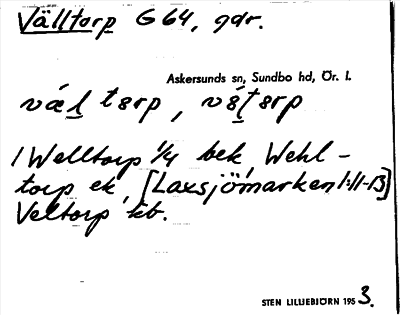 Välltorp G 64, gdr.
Askersunds sn, Sundbo hd, Ör. l.
væl tɵrp, vɵ́ltɵrp
/Welltorp 1/4 bek, Wehl-
torp ek, [Laxsjömarken 1:11-13]
Veltorp kb.
STEN LILLIEBJÖRN 1953.